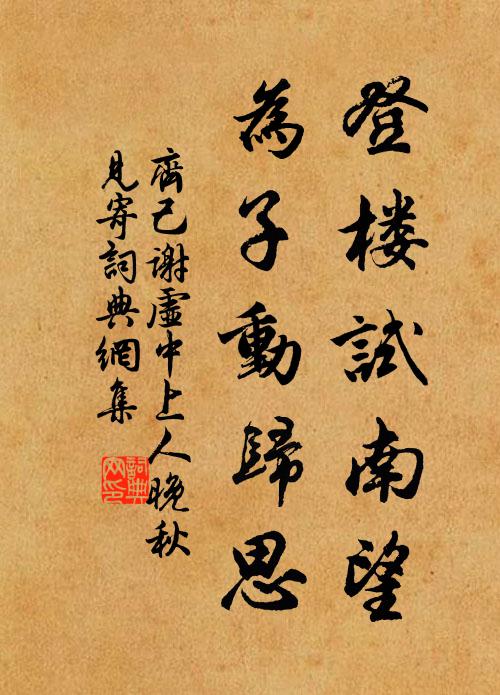 登楼試南望
為子動歸思
齊己謝虛中上人晚秋
見寄詞典網集